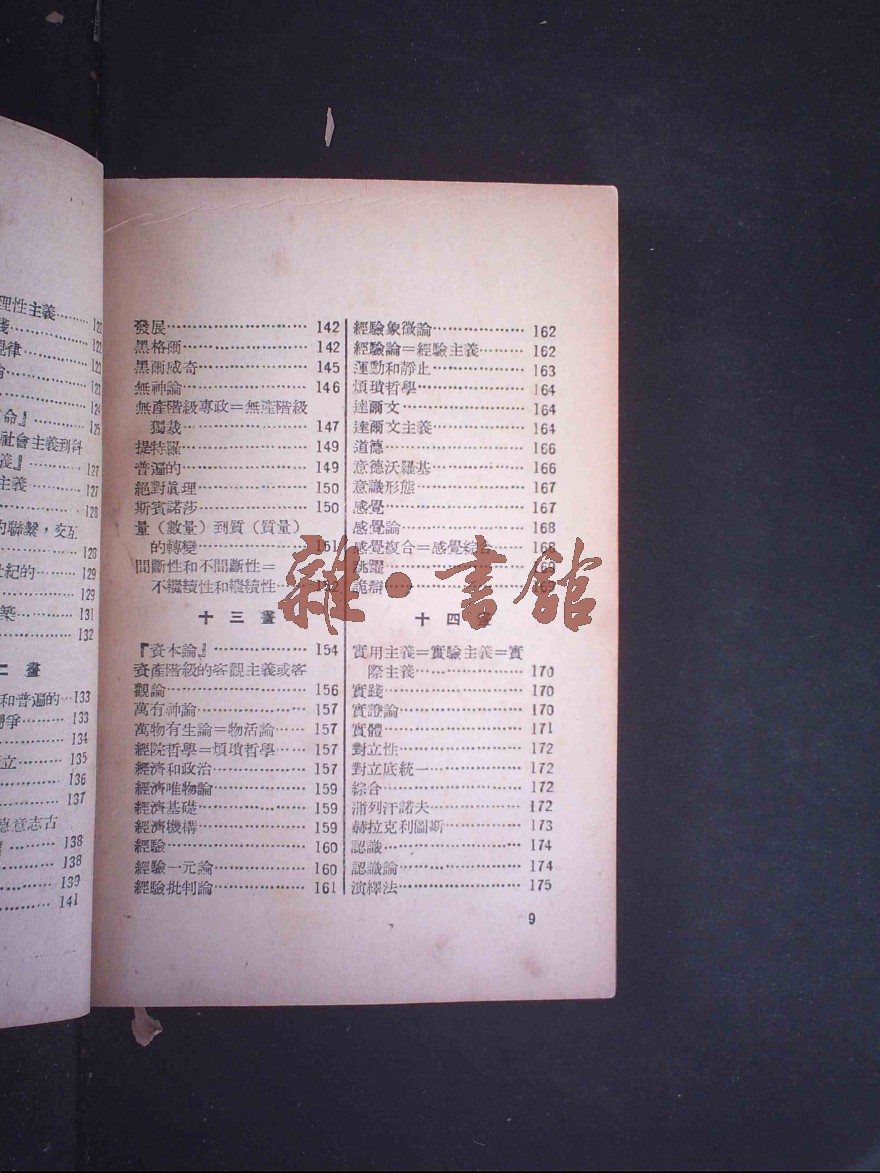 理性主義……… 122
122
律………… 123
123
124
命』……… 125
社會主義到科
義』……… 127
主義…… 127
128
的聯繫，交互
128
世紀的…… 129
129
築……… 131
132
二 畫
和普遍的…133
爭……… 133
134
立……… 135
136
137
德意志古
138
138
139
141
發展…………………… 142
黑格爾………………… 142
黑爾威奇……………… 145
無神論………………… 146
無產階級專政＝無產階級
獨裁………………… 147
提特羅………………… 149
普遍的………………… 149
絕對眞理……………… 150
斯賓諾莎……………… 150
量（數量）到質（質量）
的轉變……………… 151
間斷性和不間斷性＝
不繼續性和繼續性…… 152
十 三 畫
『資本論』…………… 154
資產階級的客觀主義或客
觀論…………………… 156
萬有神論……………… 157
萬物有生論＝物活論…… 157
經院哲學＝煩瑣哲學…… 157
經濟和政治…………… 157
經濟唯物論…………… 159
經濟基礎……………… 159
經濟機構……………… 159
經驗…………………… 160
經驗一元論…………… 160
經驗批判論…………… 161
經驗象徵論…………… 162
經驗論＝經驗主義……… 162
運動和靜止…………… 163
煩瑣哲學……………… 164
達爾文………………… 164
達爾文主義…………… 164
道德…………………… 166
意德沃羅基…………… 166
意識形態……………… 167
感覺…………………… 167
感覺論………………… 168
感覺複合＝感覺綜合…… 168
跳躍…………………… 169
詭辯…………………… 169
十 四 畫
實用主義＝實驗主義＝實
際主義……………… 170
實踐…………………… 170
實證論………………… 170
實體…………………… 171
對立性………………… 172
對立底統一…………… 172
綜合…………………… 172
蒲列汗諾夫…………… 172
赫拉克利圖斯………… 173
認識…………………… 174
認識論………………… 174
演繹法………………… 175
9
雜·書館